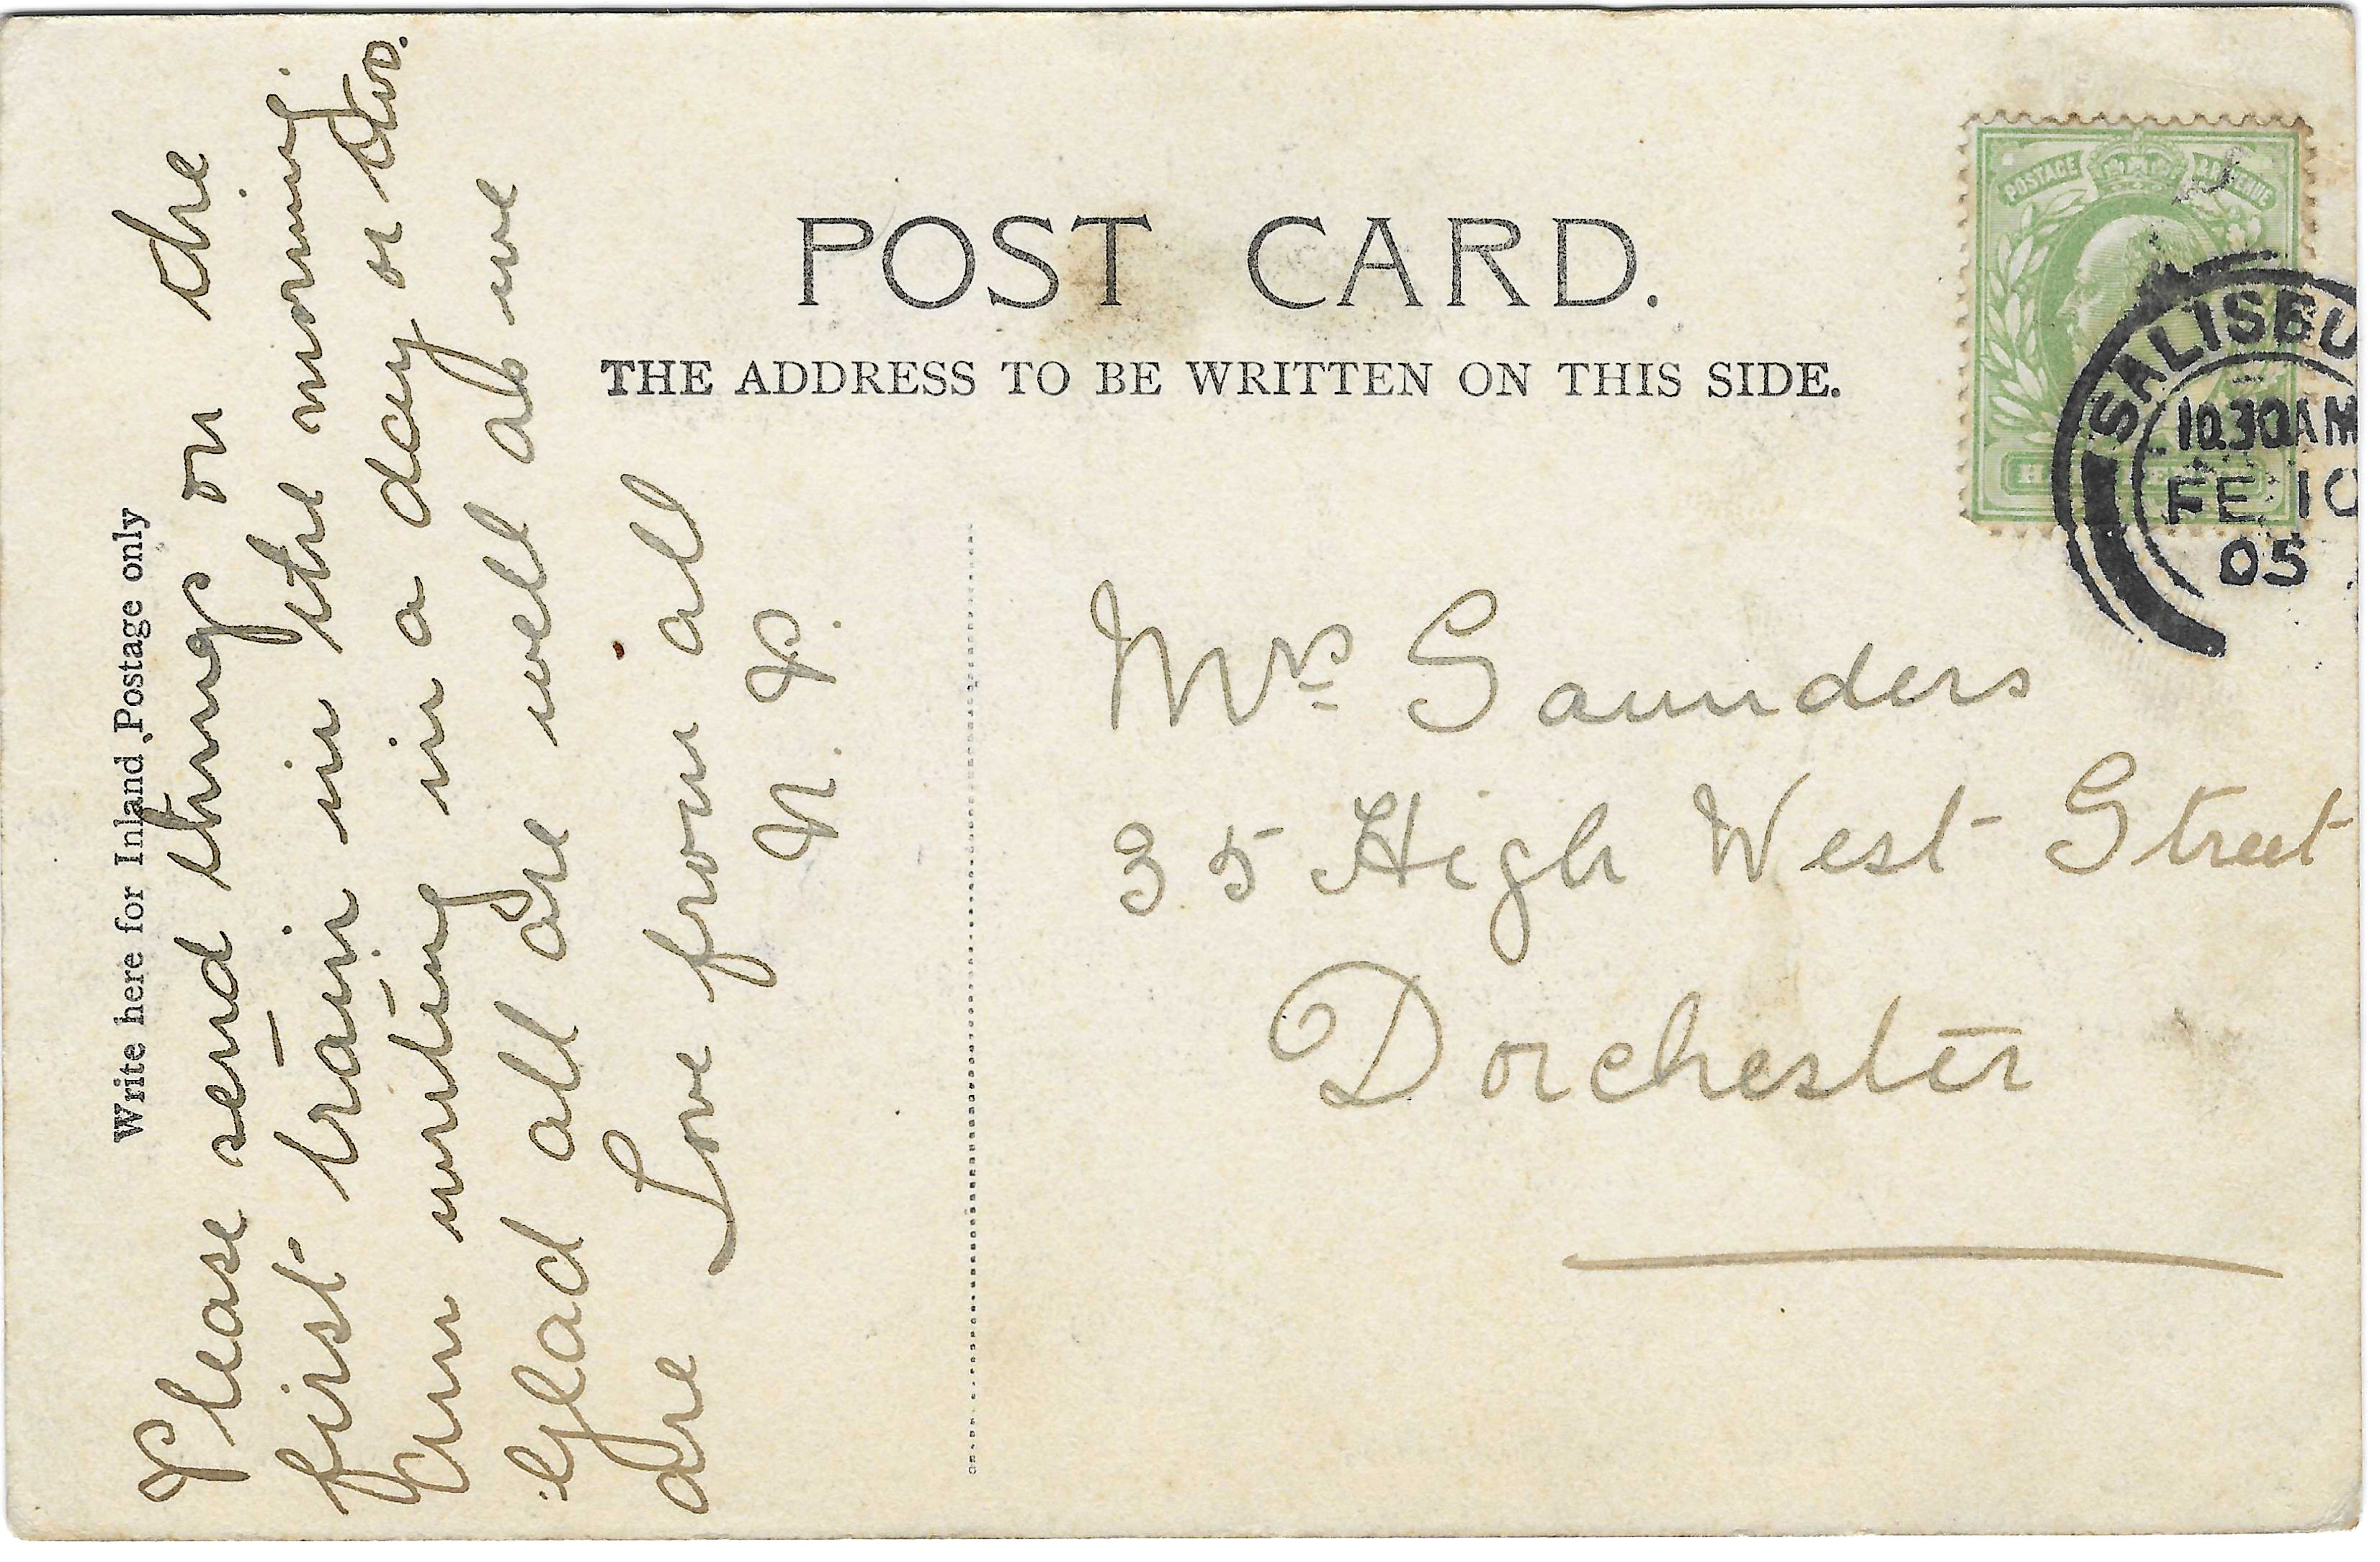 POST CARD.
THE ADDRESS TO BE WRITTEN ON THIS SIDE.
Write here for Inland Postage only
Please send things on the
first train in the morning.
Am writing in a day or two.
Glad all are well as we
are Love from all
N. P.
POSTAGE REVENUE
SALISBU
10.30AM
FE 10
05
Mrs Saunders
35 High West Street
Dorchester